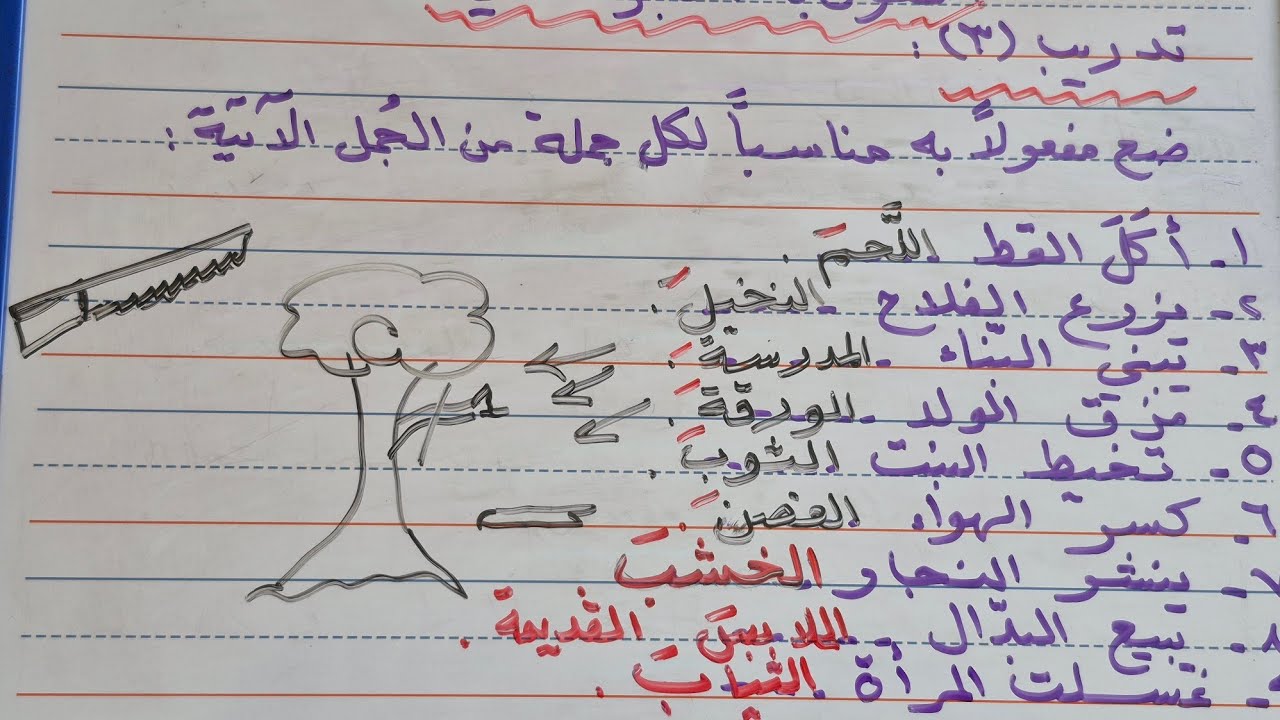 تدريب (٣) :
ضع مفعولاً به مناسباً لكل جملة من الجُمل الآتيَة :
١ـ أكَلَ القط اللَّحمَ .
٢ـ يزرع الفلاح النخيلَ .
٣ـ يبني البنّاء المدرسةَ .
٤ـ مزق الولد الورقةَ .
٥ـ تخيط البنت الثوبَ .
٦ـ كسر الهواء الغصنَ .
٧ـ ينشر النجار الخشبَ
٨ـ يبيع البدّال الملابسَ القديمة .
غسلت المرأة الثيابَ .